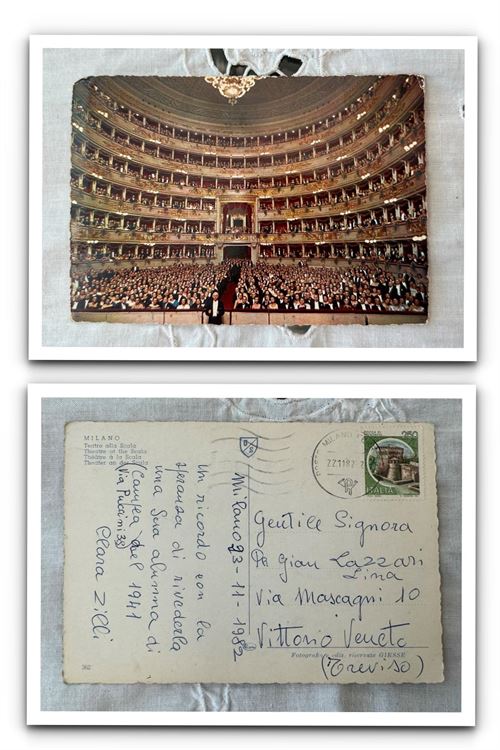 MILANO
Teatro alla Scala
Theatre of the Scala
Théâtre à la Scala
Theater an der Scala
Milano 23-11-1982
Un ricordo con la
speranza di rivederla
una Sua alunna di
del 1941
(Via Puccini 38)
Clara Zilli
362
MILANO
22.11.82
250
ITALIA
Gentile Signora
De Gian Lazzari
Lina
Via Mascagni 10
Vittorio Veneto
(Treviso)
Fotografia ediz. riservate GIESSE